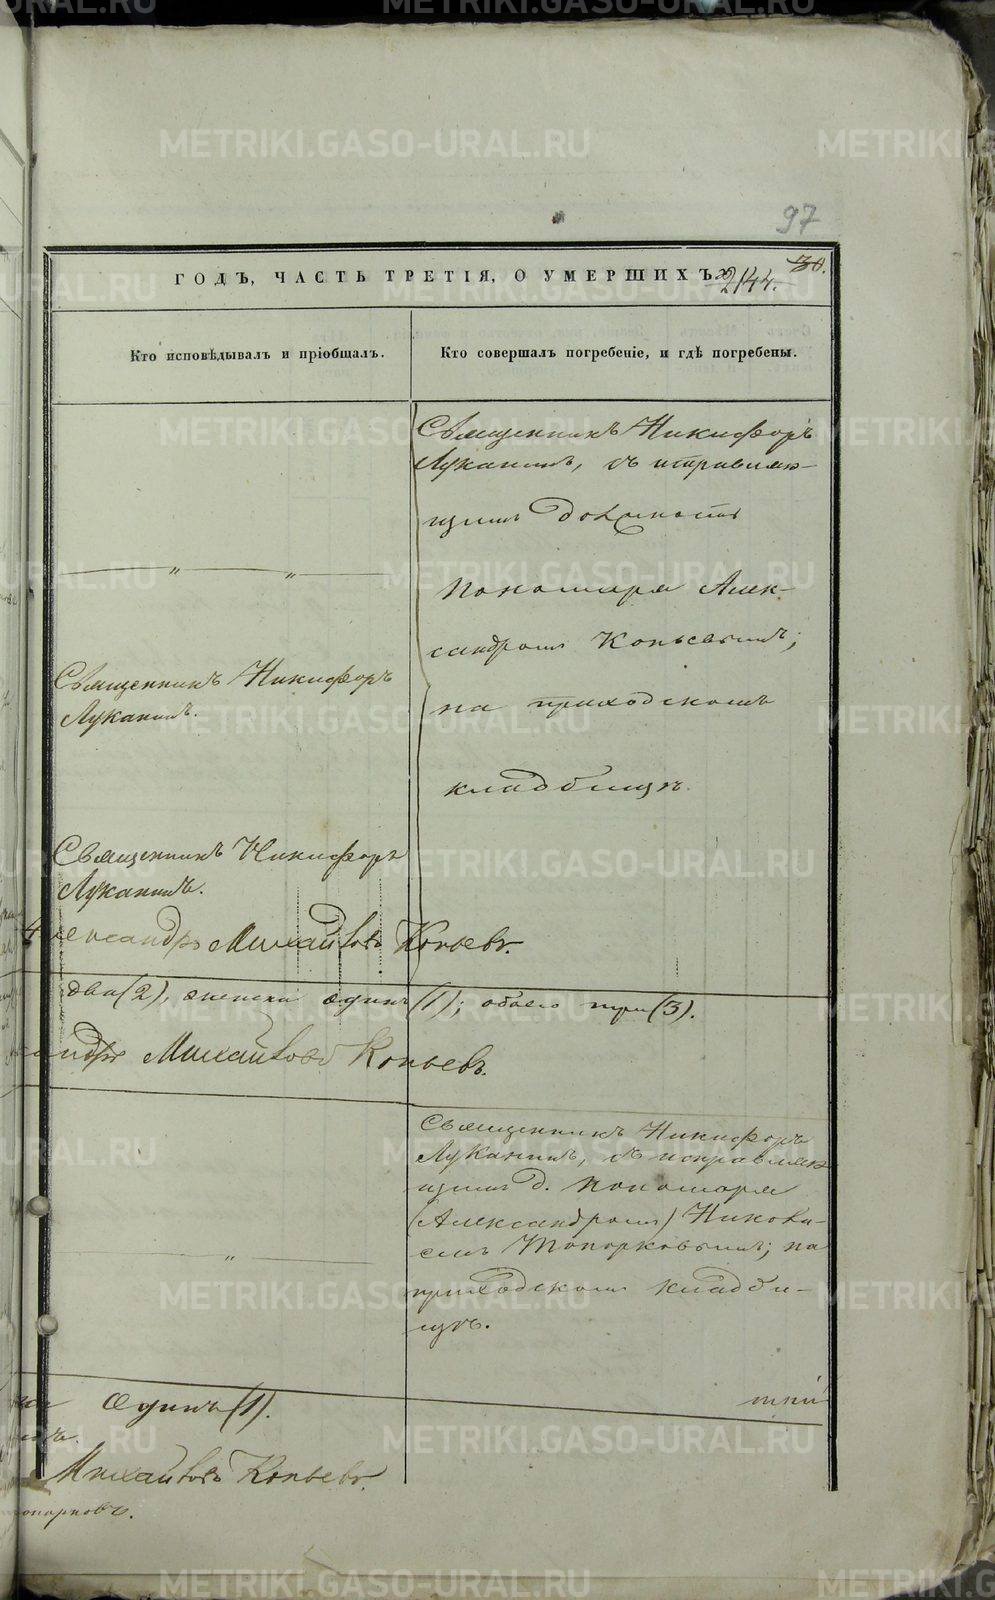 97
ГОДЪ, ЧАСТЬ ТРЕТІЯ, О УМЕРШИХЪ.
30.
2144.
Кто исповѣдывалъ и пріобщалъ.
Кто совершалъ погребеніе, и гдѣ погребены.
Священникъ Никифоръ
Луканинъ, съ исправляю-
щимъ должность
пономаря Алек-
сандромъ Копьевымъ;
на приходскомъ
кладбищѣ.
" "
Священникъ Никифоръ
Луканинъ.
Священникъ Никифоръ
Луканинъ.
Александръ Михайловъ Копьевъ.
два (2), женска одинъ (1); обоего три (3).
Михайловъ Копьевъ.
Священникъ Никифоръ
Луканинъ, съ исправляю
щимъ д. пономаря
(Александромъ) Никола-
емъ Топорковымъ; на
приходскомъ кладби-
щѣ.
"
одинъ (1).
Михайловъ Копьевъ.
METRIKI.GASO-URAL.RU